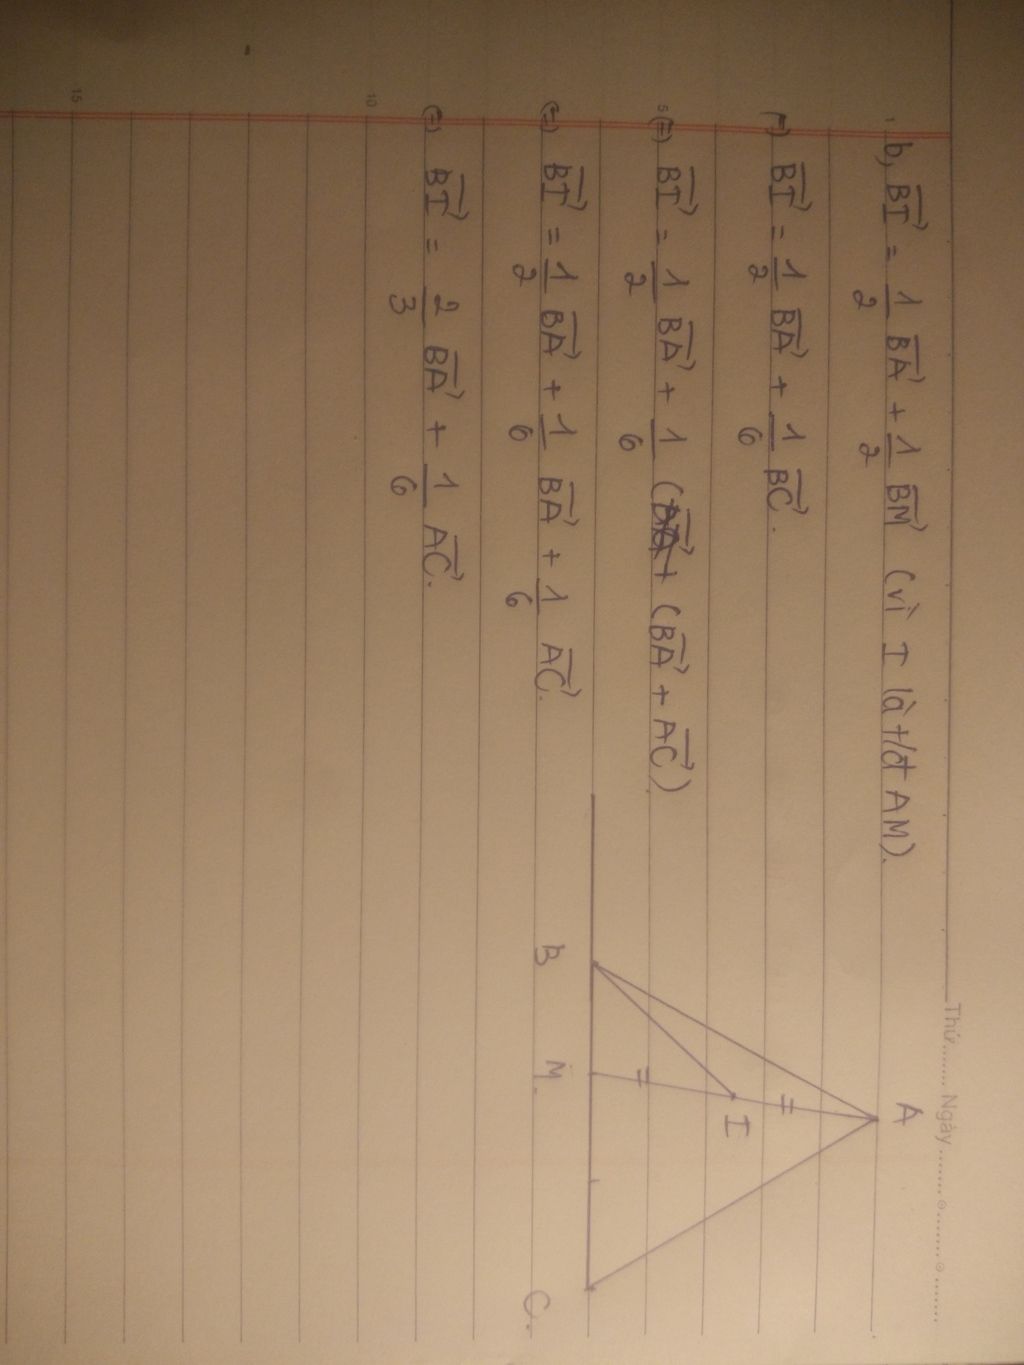 Thứ........ Ngày ........⊙........⊙........
1 b, $\overrightarrow{BI} = \frac{1}{2} \overrightarrow{BA} + \frac{1}{2} \overrightarrow{BM}$ (vì I là t/đ AM).
(=) $\overrightarrow{BI} = \frac{1}{2} \overrightarrow{BA} + \frac{1}{6} \overrightarrow{BC}$.
5 (=) $\overrightarrow{BI} = \frac{1}{2} \overrightarrow{BA} + \frac{1}{6} (\overrightarrow{BA} + \overrightarrow{AC})$
(=) $\overrightarrow{BI} = \frac{1}{2} \overrightarrow{BA} + \frac{1}{6} \overrightarrow{BA} + \frac{1}{6} \overrightarrow{AC}$.
(=) $\overrightarrow{BI} = \frac{2}{3} \overrightarrow{BA} + \frac{1}{6} \overrightarrow{AC}$.
10
15
A
I
B M C